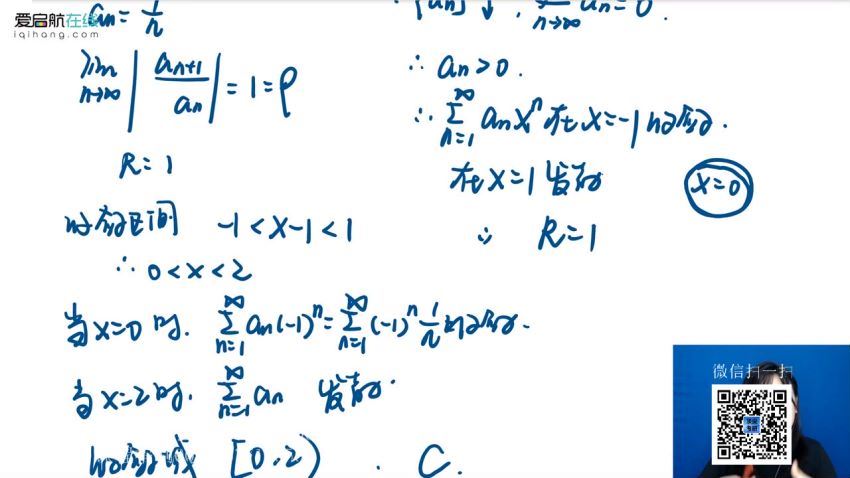 爱启航在线
iqihang.com
an = 1/n
lim n→∞ |an+1/an| = 1 = ρ
R = 1
收敛区间 -1 < x-1 < 1
∴ 0 < x < 2
当 x=0 时. ∑n=1∞ an(-1)^n = ∑n=1∞ (-1)^n 1/n 收敛.
当 x=2 时. ∑n=1∞ an 发散.
收敛域 [0,2) . C.
∵ {an}↓, lim n→∞ an = 0.
∴ an > 0.
∴ ∑n=1∞ an x^n 在 x=-1 收敛.
在 x=1 发散
x=0
∴ R=1
微信扫一扫